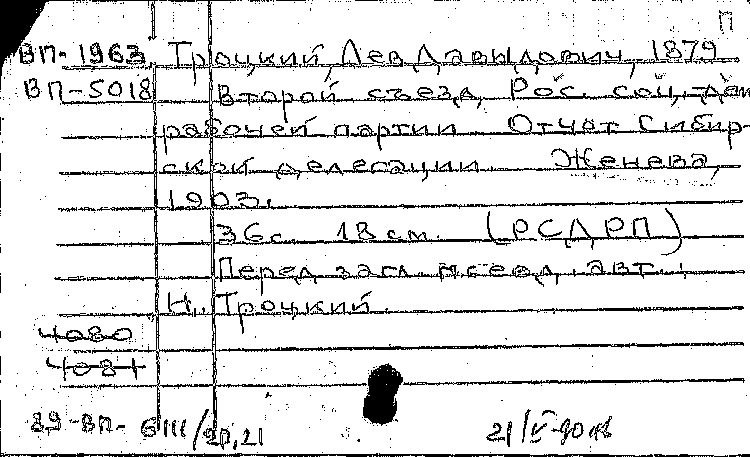 П
ВП-1963 Троцкий, Лев Давыдович, 1879
ВП-5018 Второй съезд Рос. соц.-дем
рабочей партии Отчет Сибир-
ской делегации. Женева,
1903.
36 с. 18 см. (РСДРП)
Перед загл. псевд. авт.:
Н. Троцкий.
4080
4081
89-ВП-
21/V-90